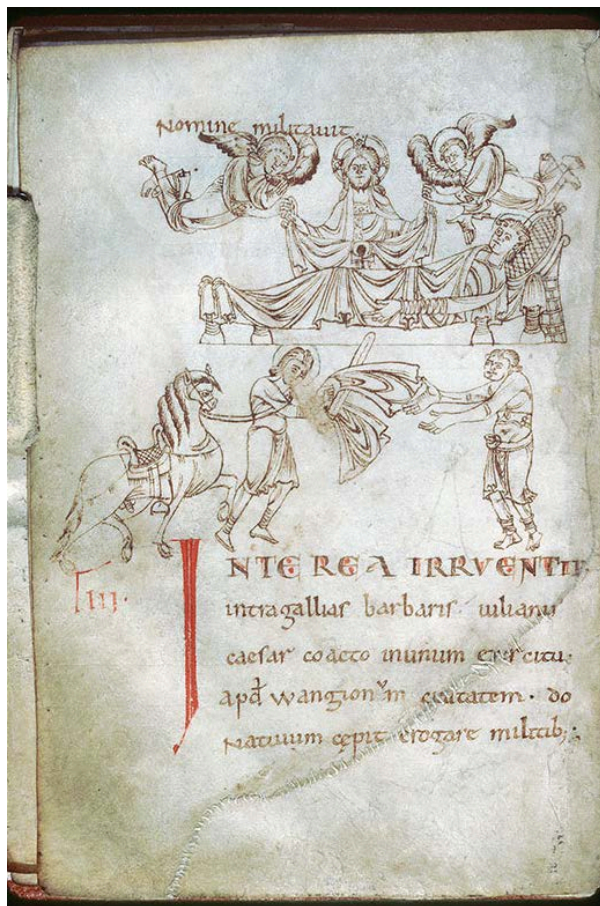 Nomine militavit.
INTEREA IRRVENTIB
III.
intra gallias barbaris iulianus
caesar coacto inunum exercitu.
apđ wangionum civitatem. do
nativum cępit erogare militib;